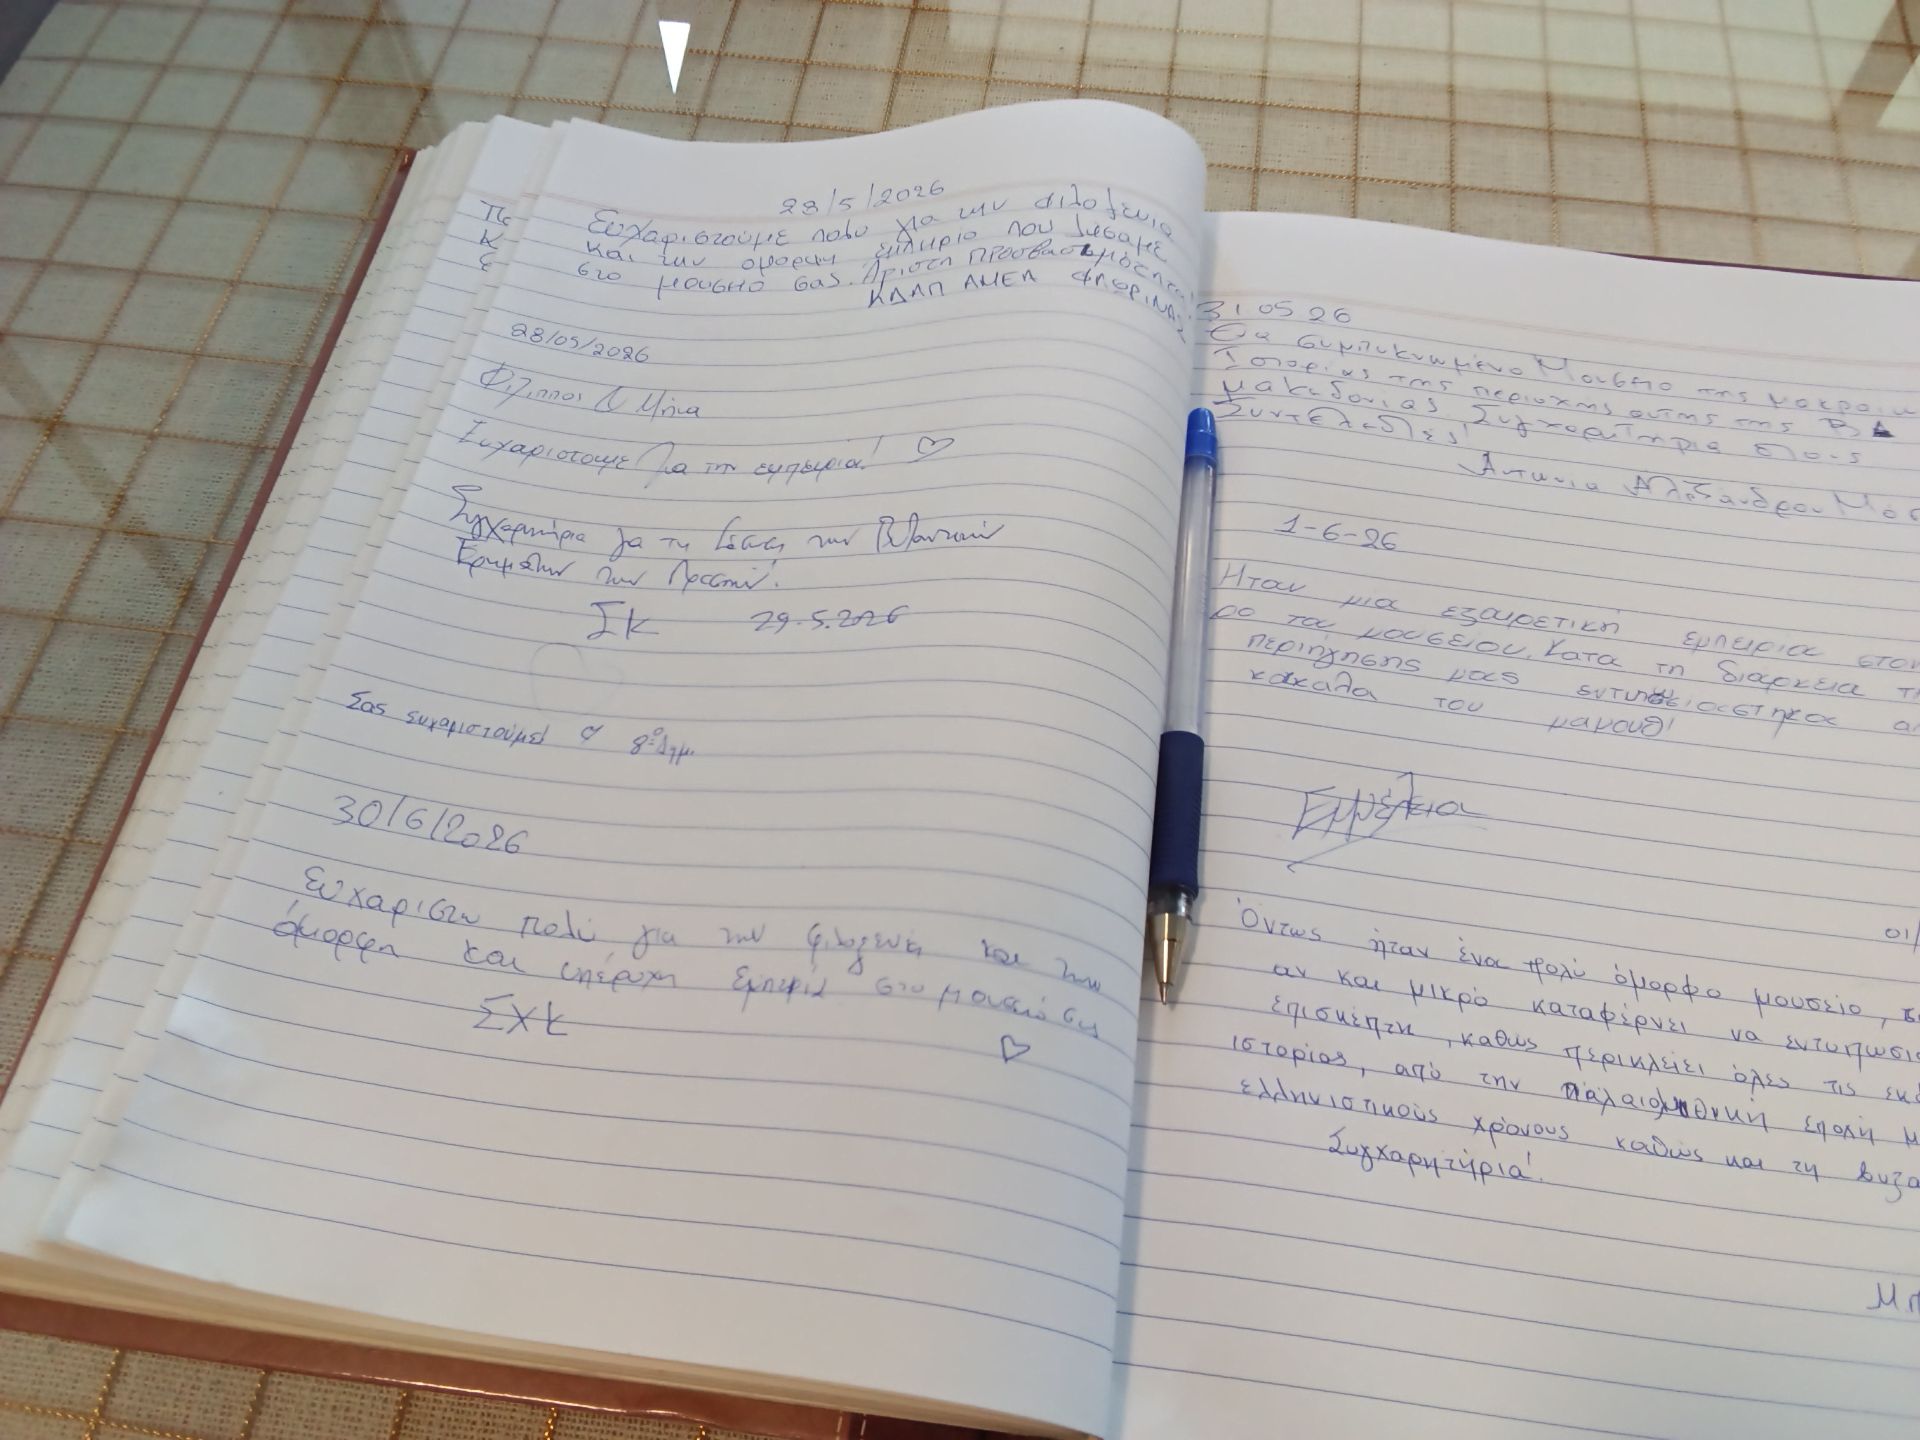 28/5/2026
Ευχαριστούμε πολύ για την φιλοξενία
και την όμορφη εμπειρία που ζήσαμε
στο μουσείο σας. Άριστη προσβασιμότητα!
ΚΔΑΠ ΑΜΕΑ ΦΛΩΡΙΝΑΣ
28/05/2026
Φίλιππος &
Ευχαριστουμε για την εμπειρία! ♡
Συγχαρητήρια για τη των Βυζαντινών
των Πρεσπών.
ΣΚ 29.5.2026
Σας ευχαριστούμε! 8º Δημ.
30/6/2026
Ευχαριστώ πολύ για την φιλοξενία και την
όμορφη και υπέροχη εμπειρία στο μουσείο σας
ΣΧΚ
♡
Πε
Κ
ε
31.05 26
Ένα συμπυκνωμένο Μουσείο της μακραιω
Ιστορίας της περιοχής αυτής της
Μακεδονίας. Συγχαρητήρια στους
Συντελεστές!
Αντωνία Αλεξάνδρου
1-6-26
Ήταν μια εξαιρετική εμπειρία στον
ρο του μουσείου. Κατα τη διαρκεια τη
περιήγησης μας εντυπωσιαστηκα απ
κόκαλα του μαμουθ!
Εμμέλεια
01/
Όντως ήταν ένα πολύ όμορφο μουσείο,
αν και μικρό καταφέρνει να εντυπωσιά
επισκέπτη, καθώς περικλείει όλες τις εκ
ιστορίας, από την παλαιολιθική εποχή μ
ελληνιστικούς χρόνους καθώς και τη βυζα
Συγχαρητήρια!
Μπ